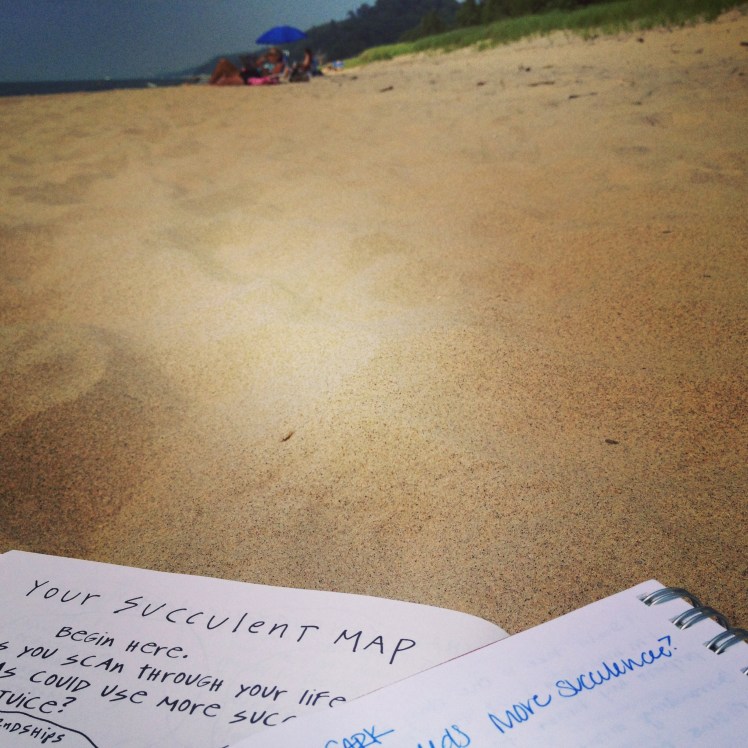 Your Succulent Map
Begin Here.
s you scan through your life
as could use more succ
Juice?
endships
more succulence?